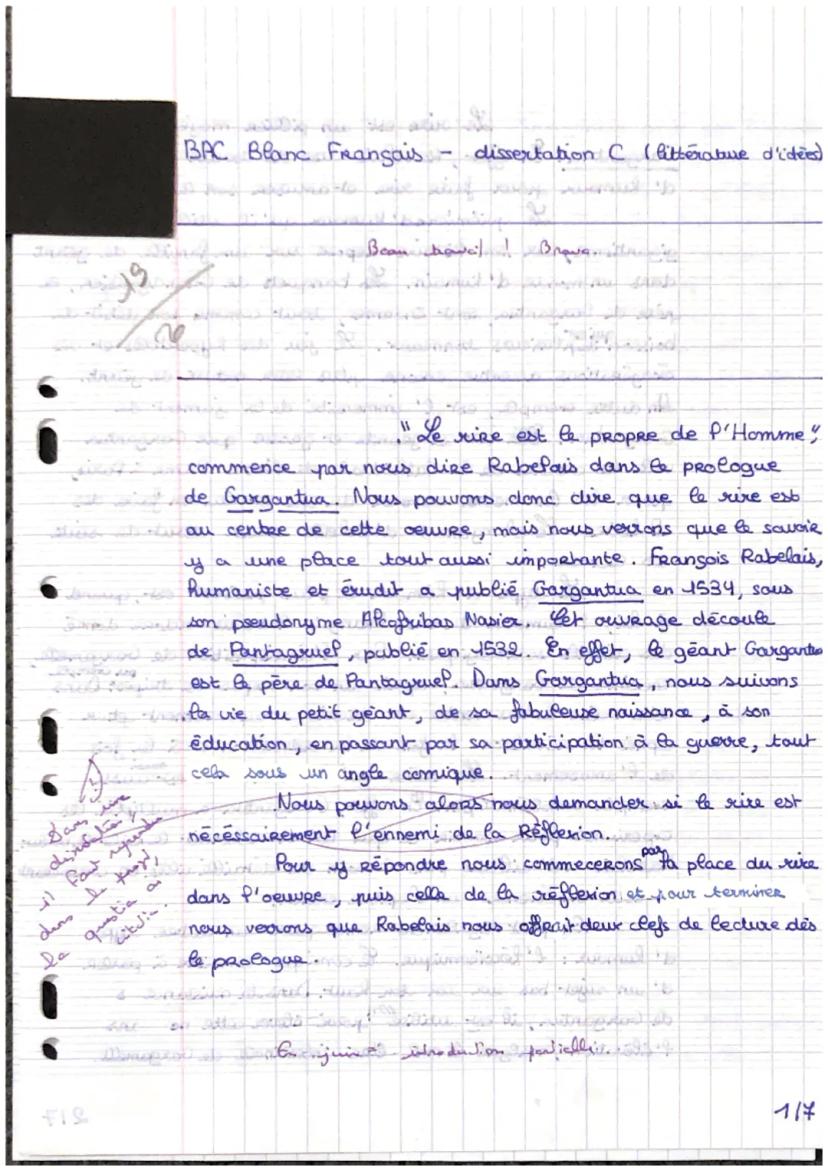 BAC Blanc Français - dissertation C (littérature d'idées)
Beau travail ! Bravo.
19
/20
"Le rire est le propre de l'Homme",
commence par nous dire Rabelais dans le prologue
de Gargantua. Nous pouvons donc dire que le rire est
au centre de cette oeuvre, mais nous verrons que le savoir
y a une place tout aussi importante. François Rabelais,
humaniste et érudit a publié Gargantua en 1534, sous
son pseudonyme Alcofribas Nasier. Cet ouvrage découle
de Pantagruel, publié en 1532. En effet, le géant Gargantua
est le père de Pantagruel. Dans Gargantua, nous suivons
la vie du petit géant, de sa fabuleuse naissance, à son
éducation, en passant par sa participation à la guerre, tout
cela sous un angle comique.
Nous pouvons alors nous demander si le rire est
nécéssairement l'ennemi de la Réflexion.
Pour y répondre nous commecerons par la place du rire
dans l'oeuvre, puis celle de la réflexion et pour terminer
nous verrons que Rabelais nous offrait deux clefs de lecture dès
le prologue.
Dans une
dissertation,
il faut reprendre
dans le projet,
la question ou
citation.
En juin = introduction partielle.
1/7
2/7